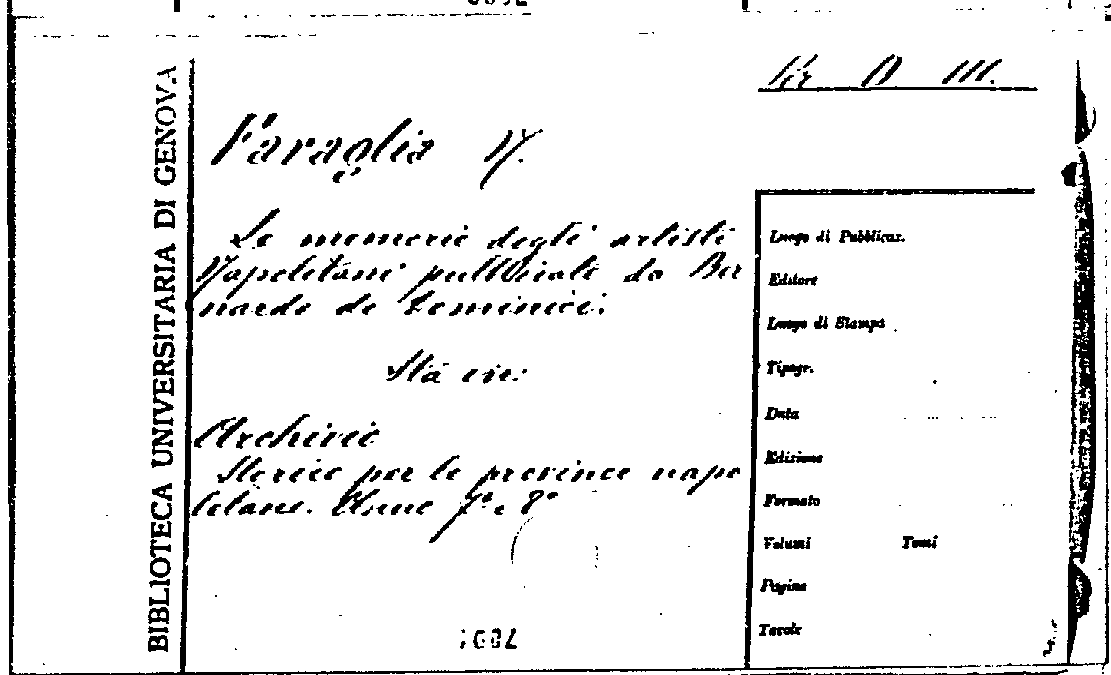 Per D III.
BIBLIOTECA UNIVERSITARIA DI GENOVA
Faraglia N.
Le memorie degli artisti
Napoletani pubblicate da Ber
nardo de Dominici.
Sta in:
Archivio
Storico per le province napo
letane. Anno 7º e 8º
Luogo di Pubblicaz.
Editore
Luogo di Stampa
Tipogr.
Data
Edizione
Formato
Volumi Tomi
Pagine
Tavole